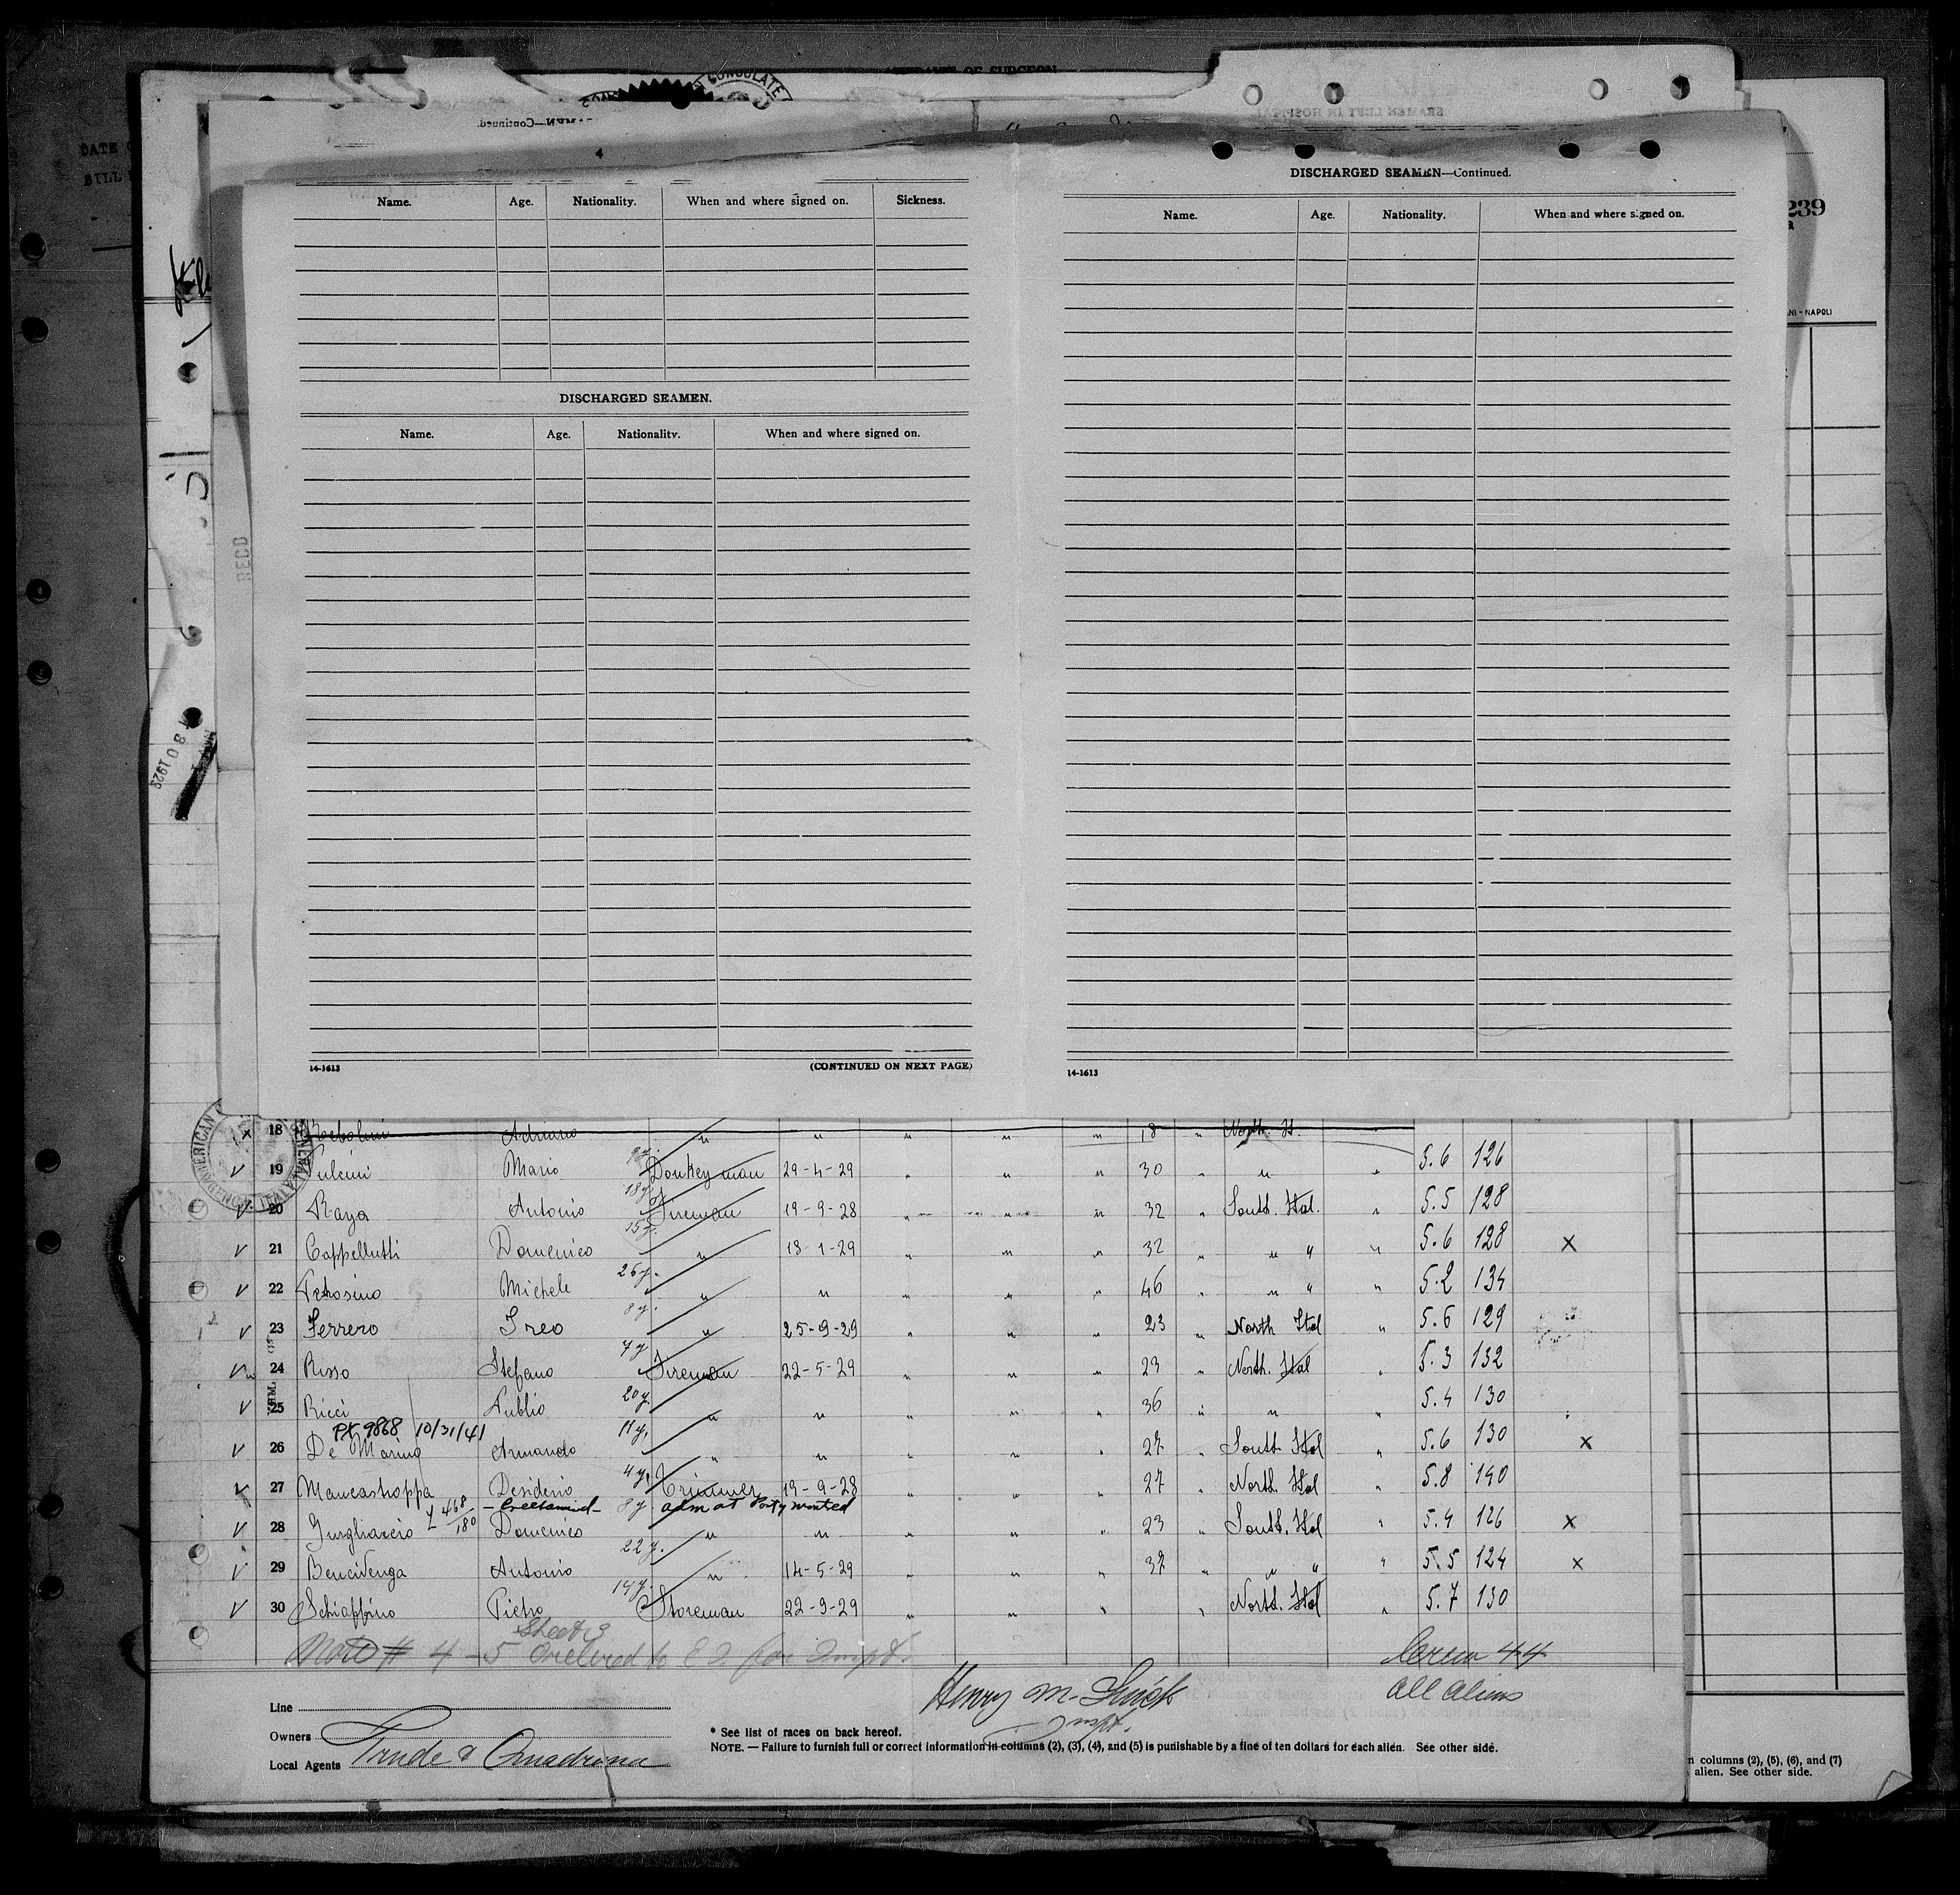 AFFIDAVIT OF SURGEON
CONSULATE
SEAMEN LEFT IN HOSPITAL
—Continued.
DATE
BILL
4
Name. Age. Nationality. When and where signed on. Sickness.
DISCHARGED SEAMEN.
Name. Age. Nationality. When and where signed on.
14-1613 (CONTINUED ON NEXT PAGE)
DISCHARGED SEAMEN—Continued.
Name. Age. Nationality. When and where signed on.
14-1613
239
NI - NAPOLI
RECD
30 1929
AMERICAN
18 Adriano " " " " " 18 " North. It. "
19 Mario Donkeyman 29-4-29 " " " 30 " " " 5.6 126
20 Raya Antonio 18y. Fireman 19-9-28 " " " 32 " South. Ital. " 5.5 128
21 Cappellutti Domenico 15y. " 18-1-29 " " " 32 " " " " 5.6 128 X
22 Petrosino Michele 26y. " " " " " 46 " " " " 5.2 134
23 Ferrero Ireo 8y. " 25-9-29 " " " 23 " North Ital " 5.6 129
24 Risso Stefano 7y Fireman 22-5-29 " " " 23 " North. Ital " 5.3 132
25 Ricci Publio 20y. " " " " " 36 " " " 5.4 130
PX 9868 10/31/41
26 De Marino Armando 11y. " " " " " 27 " South Ital " 5.6 130 X
27 Mancastroppa Desiderio 4y. Trimmer 19-9-28 " " " 27 " North. Ital " 5.8 140
L 468/180 8y. adm at Port
28 Domenico " " " " " 23 " South. Ital " 5.4 126 X
29 Bencivenga Antonio 22y. " 14-5-29 " " " 37 " " " " 5.5 124 X
30 Schiappino Pietro 14y. Storeman 22-9-29 " " " " North. Ital " 5.7 130
Sheet 3
Note # 4-5 Ordered to E I for Inspt.
Crew 44
All aliens
Henry M.
Inspt.
Line
Owners
Local Agents
* See list of races on back hereof.
NOTE. — Failure to furnish full or correct information in columns (2), (3), (4), and (5) is punishable by a fine of ten dollars for each alien. See other side.
n columns (2), (5), (6), and (7)
alien. See other side.